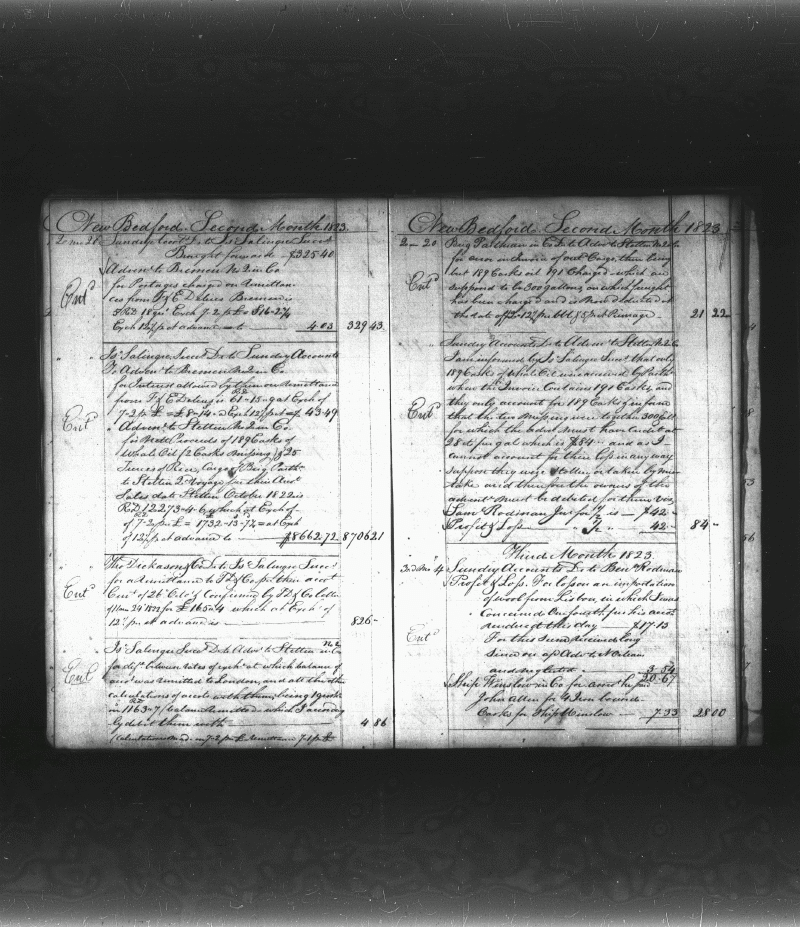 New Bedford Second Month 1823.
2 mo 20 Sundry Acco.ts Dr to Js Salinger Succr
Brought forward $325.40
Advenr to Bremen No 2 in Co
for Postages charged on Remittan
ces from F & E Delius Bremen is
Exch 12½ pct advance 4.03 329 43
Entd
Js Salinger Succr Dr to Sundry Accounts
To Advenr to Bremen No 2 in Co
for Interest allowed by them on Remittances
from F & E Delius 61-15-9 at Exch of
7-2 pr £ = £8-14- Exch 12½ pct = $ 43.49
Advenr to Stettin No 2 in Co
for Nett Proceeds of 189 Casks of
Whale Oil (2 Casks Missing) & 25
Tierces of Rice, Cargo of Brig Parthn
to Stettin 2d Voyage for their Acct
Sales date Stettin October 1822 is
Rx 12273-4 which at Exch of
of 7-2 pr £ = 1732-13-7½ = at Exch
of 12½ pct advance is $8662.72 8706 21
Entd
Tho Dickason & Co Dr to Js Salinger Succr
for a Remittance to TD & Co pr their acct
Curt of 26 Octo & Confirmed by TD & Co letter
of Nov 29 1822 for £165-4 which at Exch of
12½ pct advance is 825 -
Entd
Js Salinger Succr Dr to Advr to Stettin No 2 in Co
for diffe between rates of exch at which balance of
acct was remitted to London, and ate the other
calculations of acct with them, being
in 1163-7 balance remitted - which I accordingly
debit them with 4 86
Entd
(Calculations made on 7-2 pr £ Remittance 7-1 pr £
New Bedford Second Month 1823
2 - 20 Brig Parthian in Co Dr to Advr to Stettin No 2 in Co
for error in Invoice of out Cargo, there being
but 189 Casks oil 191 Charged - which are
supposed to be 300 gallons, on which freight
has been charged and is now deducted at
the rate of 12/ pr bbl & 5 pct Primage 21 22
Entd
Sundry Accounts Dr to Advenr to Stettin No 2 in Co
I am informed by Js Salinger Succr that only
189 Casks of Whale Oil was received by Parthn
when the Invoice Contains 191 Casks, and
they only account for 189 Casks & inform
that the two missing were together 300 gall
for which the advr must have credit at
28 cts pr gal which is $84 - and as I
cannot account for their loss in any way
suppose they were stollen, or taken by mis
take and therefore the owners of this
advent must be debited for them viz.
Saml Rodman Jr for ½ is $42 -
Profit & Loss ½ 42 - 84 -
Entd
Third Month 1823.
3rd mo 4 Sundry Accounts Dr to Benj Rodman
Profit & Loss For loss on an importation
of wool from Lisbon, in which I was
Concerned One fourth, pr his acct
rendered this day $17.13
For this Sum received long
Since on a/c Adv to N Orleans
and neglected 3.54
20.67
Ship Winslow in Co for amot he paid
John Allen for 4 Iron bound
Casks for Ship Winslow 7.33 28 00
Entd